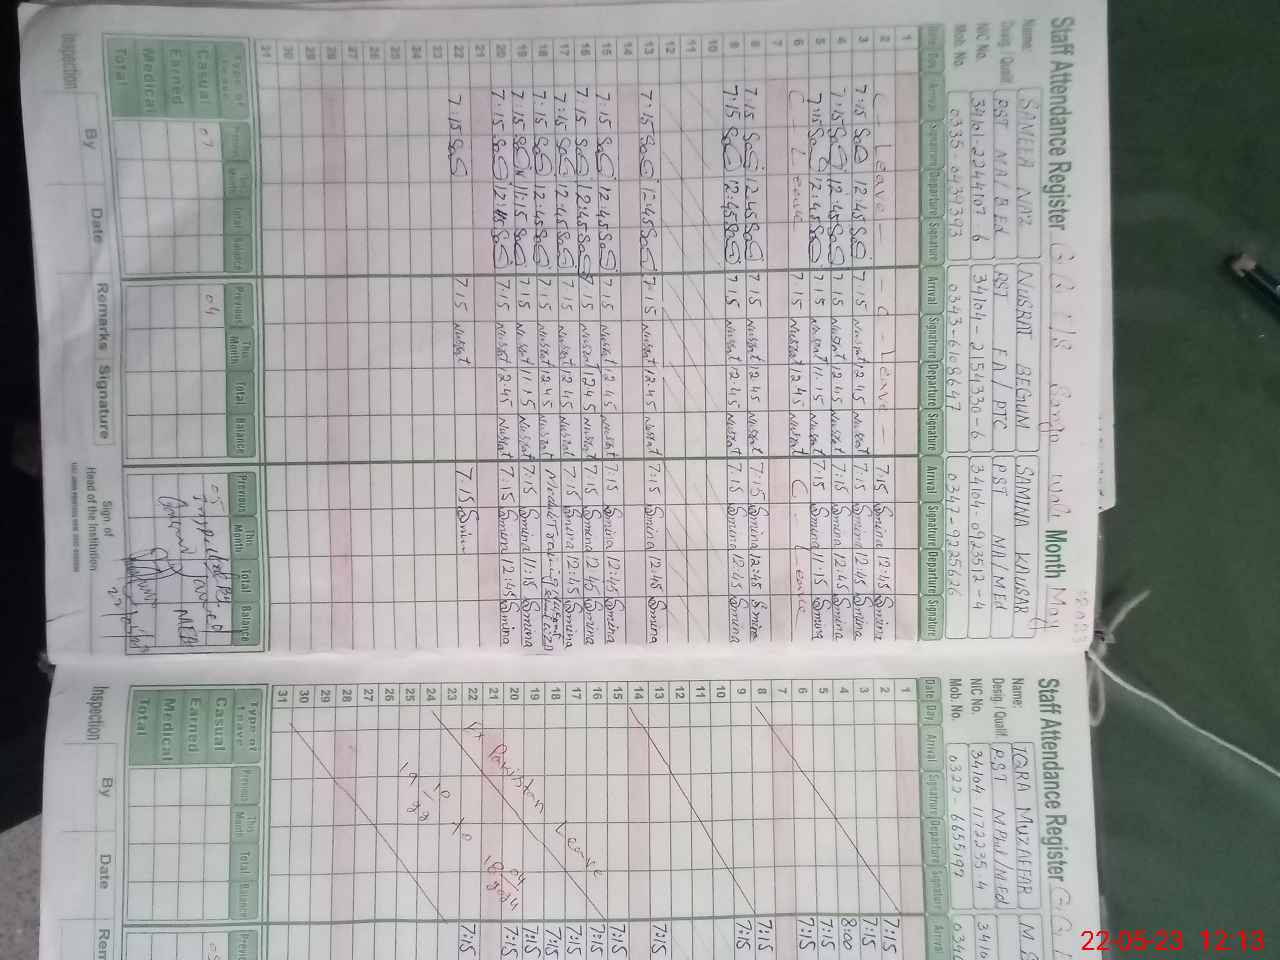 Staff Attendance Register G G P/S Month May
Name: SAMEEA NAZ NUSRAT BEGUM SAMINA KAUSAR
Desig. Qualif. PST MA/B.Ed PST FA/PTC PST MA/MEd
NIC No. 34101-2244107-6 34104-2154330-6 34104-0923512-4
Mob. No. 0335-0439393 0343-6108647 0347-9225626
Date Day Arrival Signature Departure Signature Arrival Signature Departure Signature Arrival Signature Departure Signature
1
2 C - Leave - - C - Leave - 7:15 Samina 12:45 Samina
3 7:15 12:45 7:15 Nusrat 12:45 Nusrat 7:15 Samina 12:45 Samina
4 7:15 12:45 7:15 Nusrat 12:45 Nusrat 7:15 Samina 12:45 Samina
5 7:15 12:45 7:15 Nusrat 11:15 Nusrat 7:15 Samina 11:15 Samina
6 C - Leave 7:15 Nusrat 12:45 Nusrat C. Leave
7
8 7:15 12:45 7:15 Nusrat 12:45 Nusrat 7:15 Samina 12:45 Samina
9 7:15 12:45 7:15 Nusrat 12:45 Nusrat 7:15 Samina 12:45 Samina
10
11
12
13 7:15 12:45 7:15 Nusrat 12:45 Nusrat 7:15 Samina 12:45 Samina
14
15 7:15 12:45 7:15 Nusrat 12:45 Nusrat 7:15 Samina 12:45 Samina
16 7:15 12:45 7:15 Nusrat 12:45 Nusrat 7:15 Samina 12:45 Samina
17 7:15 12:45 7:15 Nusrat 12:45 Nusrat 7:15 Samina 12:45 Samina
18 7:15 12:45 7:15 Nusrat 12:45 Nusrat Training
19 7:15 11:15 7:15 Nusrat 11:15 Nusrat 7:15 Samina 11:15 Samina
20 7:15 12:45 7:15 Nusrat 12:45 Nusrat 7:15 Samina 12:45 Samina
21
22 7:15 7:15 Nusrat 7:15 Samina
23
24
25
26
27
28
29
30
31
Type of Leave Previous This Month Total Balance Previous This Month Total Balance Previous This Month Total Balance
Casual 07 04 05
Earned
Medical
Total
Inspection By Date Remarks Signature Sign of Head of the Institution
Staff Attendance Register G G
Name: IQRA MUZAFFAR M
Desig. / Qualif. PST M.Phil/M.Ed
NIC No. 34104-1172235-4 3410
Mob. No. 0322-6655197 0340
Date Day Arrival Signature Departure Signature Arrival
1
2 7:15
3 7:15
4 8:00
5 7:15
6 7:15
7
8 7:15
9 7:15
10
11
12
13 7:15
14
15 7:15
16 7:15
17 7:15
18 7:15
19 7:15
20 7:15
21
22 7:15
23
24
25
26
27
28
29
30
31
Ex Pakistan Leave
Type of Leave Previous This Month Total Balance
Casual
Earned
Medical
Total
Inspection By Date
22-05-23 12:13